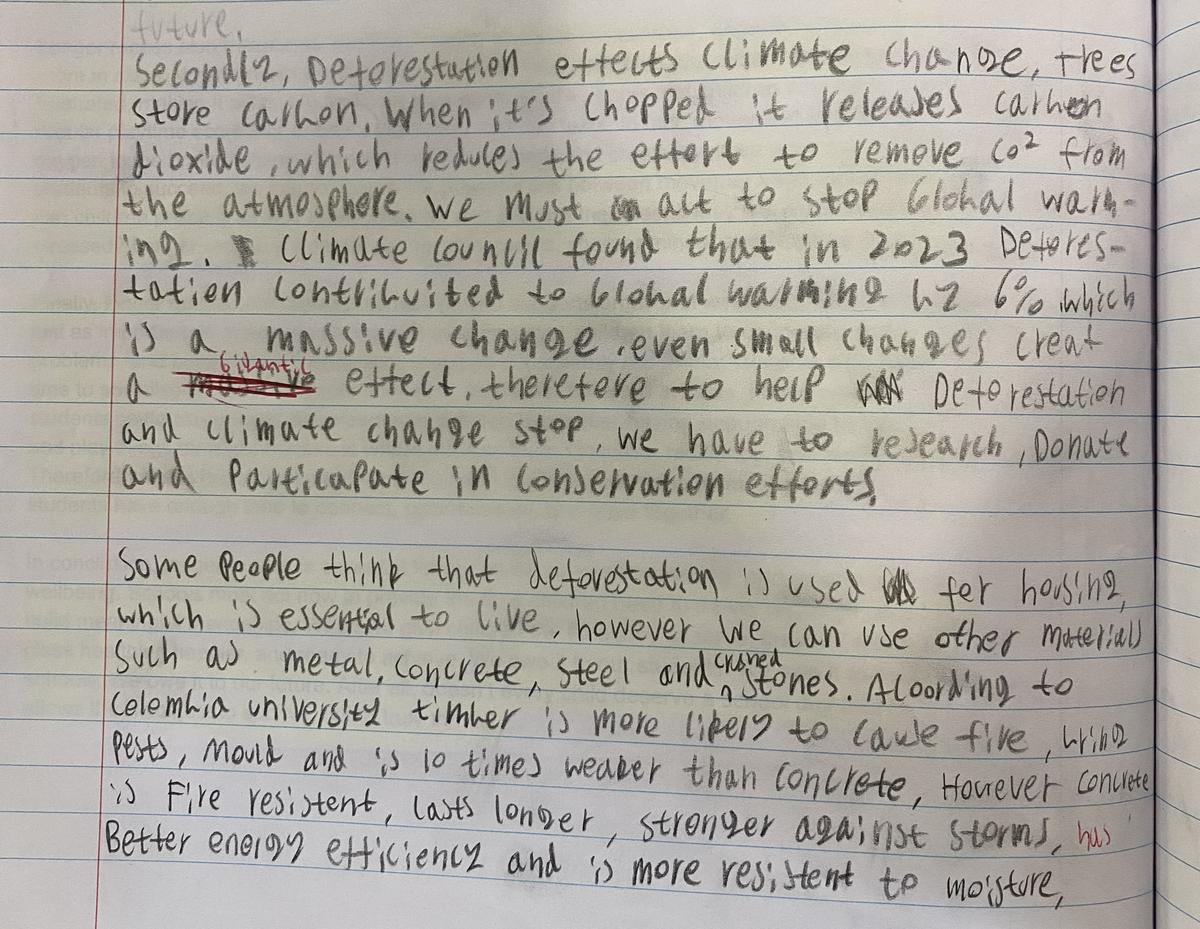 future.
Secondly, Deforestation effects climate change, trees
store carbon. When it's chopped it releases carbon
dioxide, which reduces the effort to remove CO² from
the atmosphere. We must act to stop Global warm-
ing. Climate Council found that in 2023 Defores-
tation contribuited to Global warming by 6% which
is a massive change. even small changes creat
a Gigantic effect. therefore to help Deforestation
and climate change stop, we have to research, Donate
and Particapate in conservation efforts.
Some People think that deforestation is used for housing,
which is essential to live, however we can use other materials
such as metal, concrete, steel and crushed stones. Acording to
Colombia university timber is more likely to cause fire, bring
Pests, Mould and is 10 times weaker than concrete, However concrete
is Fire resistent, lasts longer, stronger against storms, has
Better energy efficiency and is more resistent to moisture,